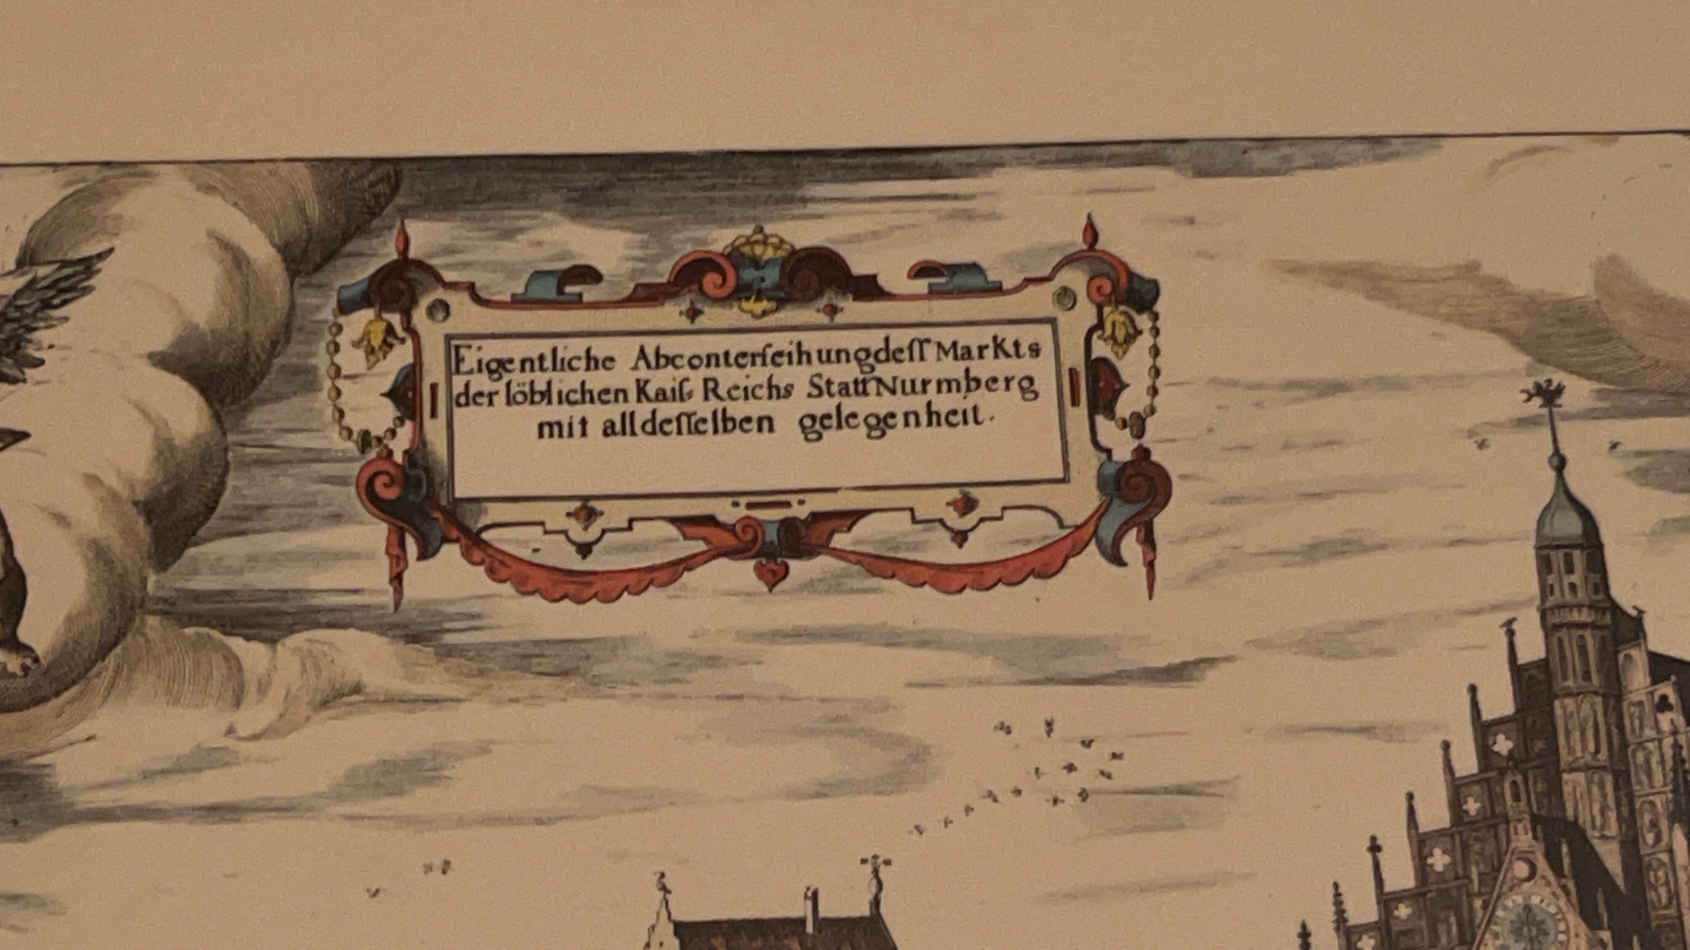 Eigentliche Abconterfeihung deſſ Markts
der löblichen Kaiſ. Reichs Statt Nurmberg
mit all deſſelben gelegenheit.